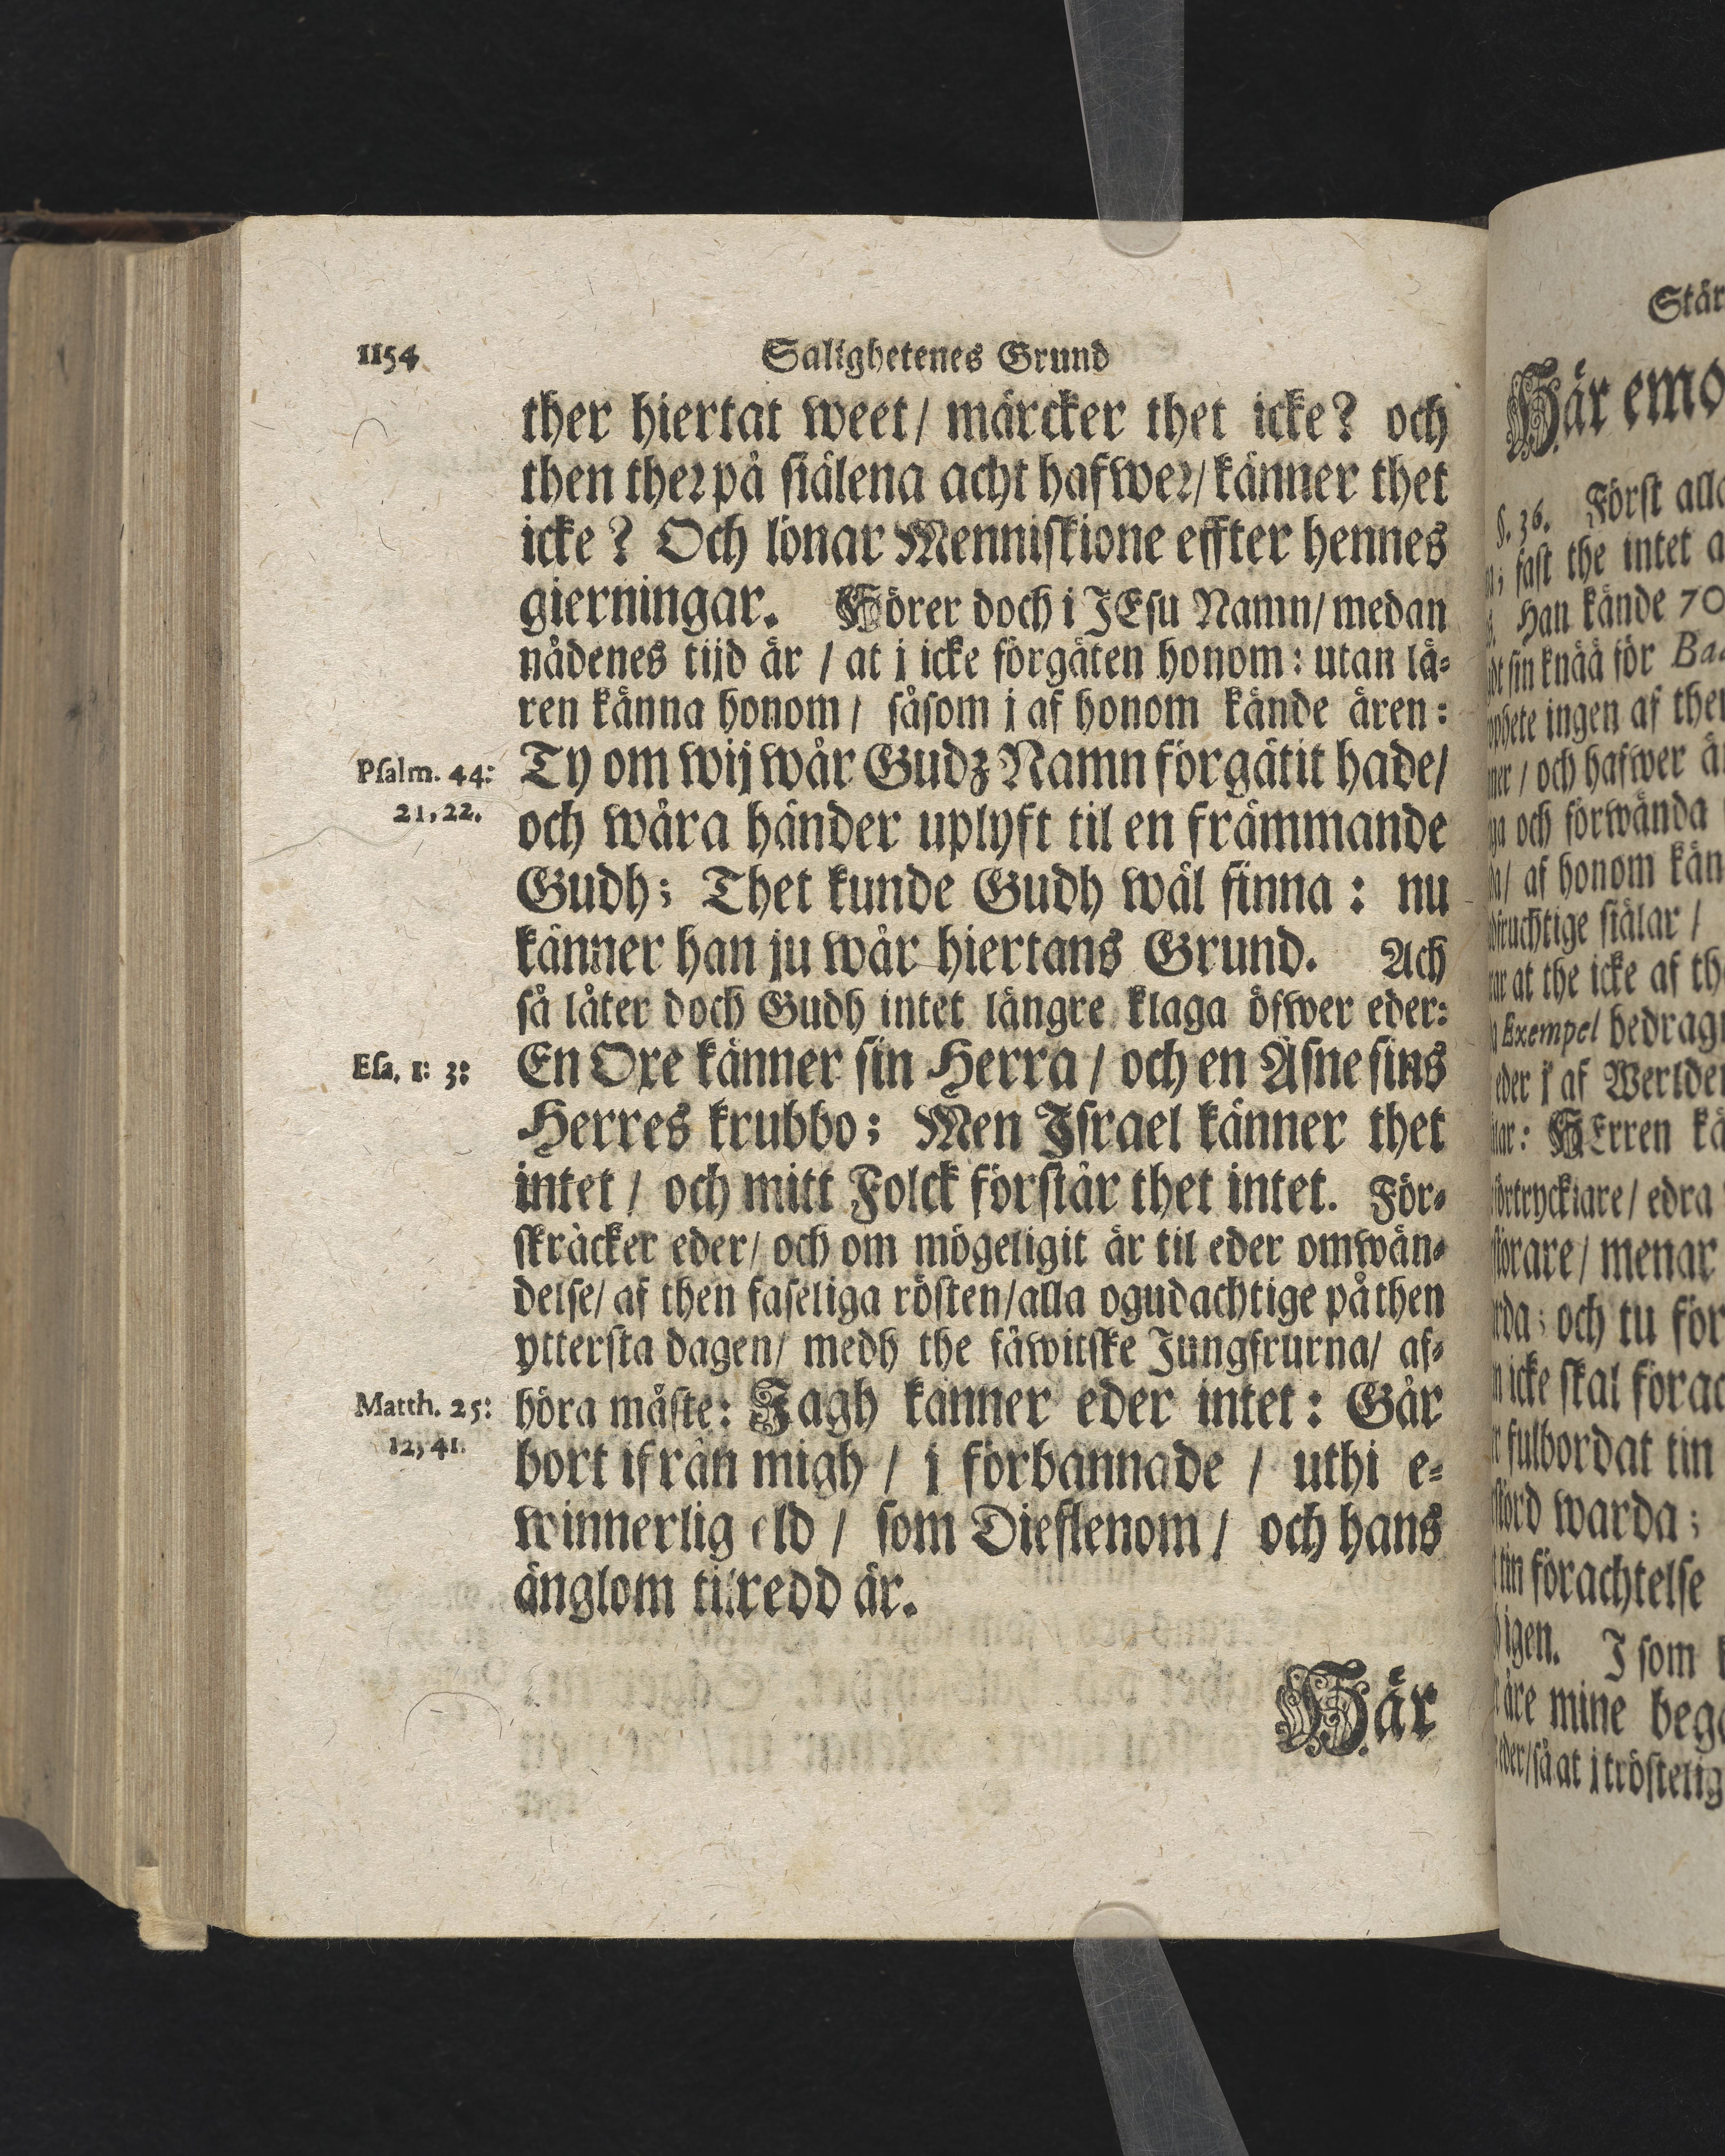 1154
Salighetenes Grund
ther hiertat weet/ märcker thet icke? och
then ther på siälena acht hafwer/ känner thet
icke? Och lönar Menniskione effter hennes
gierningar. Hörer doch i JEsu Namn/ medan
nådenes tijd är / at j icke förgäten honom: utan lä-
ren känna honom/ såsom j af honom kände ären:
Psalm. 44:
21, 22.
Ty om wij wår Gudz Namn förgätit hade/
och wåra händer uplyft til en främmande
Gudh; Thet kunde Gudh wäl finna: nu
känner han ju wår hiertans Grund. Ach
så låter doch Gudh intet längre klaga öfwer eder:
Esa. 1: 3:
En Oxe känner sin Herra / och en Åsne sins
Herres krubbo; Men Israel känner thet
intet / och mitt Folck förstår thet intet. För-
skräcker eder/ och om mögeligit är til eder omwän-
delse/ af then faseliga rösten/ alla ogudachtige på then
yttersta dagen/ medh the fåwitske Jungfrurna/ af-
Matth. 25:
12, 41.
höra måste: Jagh känner eder intet: Går
bort ifrån migh / j förbannade / uthi e-
winnerlig eld / som Dieflenom / och hans
änglom tilredd är.
Här
Här emo
§. 36. Först
fast the intet
Han kände 70
sin knää för
ingen af
och hafwer
och förwända
af honom
siälar /
at the icke af
Exempel
j af
HErren
edra
menar
och tu för
icke skal
fulbordat tin
warda;
tin förachtelse
igen. J som
mine
så at j